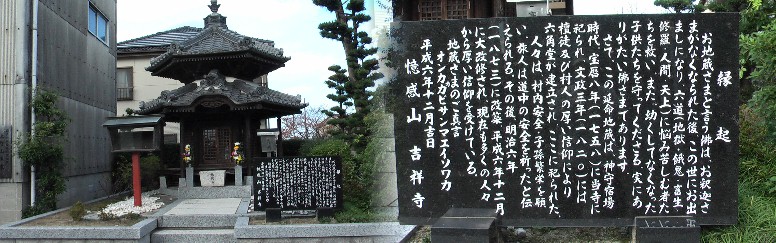 縁起
お地蔵さまと言う佛は、お釈迦さ
まがなくなられた後、この世にお出
ましになり、六道(地獄 餓鬼 畜生
修羅 人間 天上)に悩み苦しむ者た
ちを救い、また、幼くしてなくなった
子供たちを守ってくださる、実にあ
りがたい佛さまであります。
さて、この延命地蔵は、神守宿場
時代、宝暦八年(一七五八)に当寺に
祀られ、文政三年(一八二〇)には
檀徒及び村人の厚い信仰により
六角堂が建立され、ここに祀られた。
人々は、村内安全・子孫繁栄を願
い、旅人は道中の安全を祈ったと伝
えられる。その後、明治六年
(一八七三)に改築、平成六年十二月
に大改修され、現在も多くの人々
から厚い信仰を受けている。
地蔵さまのご真言
オンカカカビサンマエイソワカ
平成六年十二月吉日
憶感山 吉祥寺